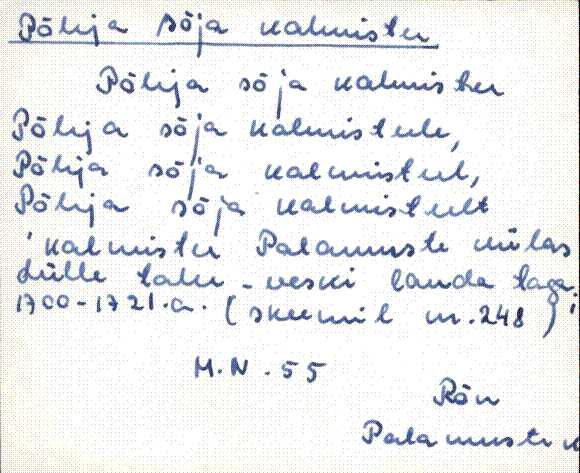 Põhja sõja kalmistu
Põhja sõja kalmistu
Põhja sõja kalmistule,
Põhja sõja kalmistul,
Põhja sõja kalmistult
'kalmistu Palamuste külas
Lülle talu-veski lauda taga.
1700-1721.a. (skeemil nr. 248)'
M.N. 55
Rõn
Palamuste k